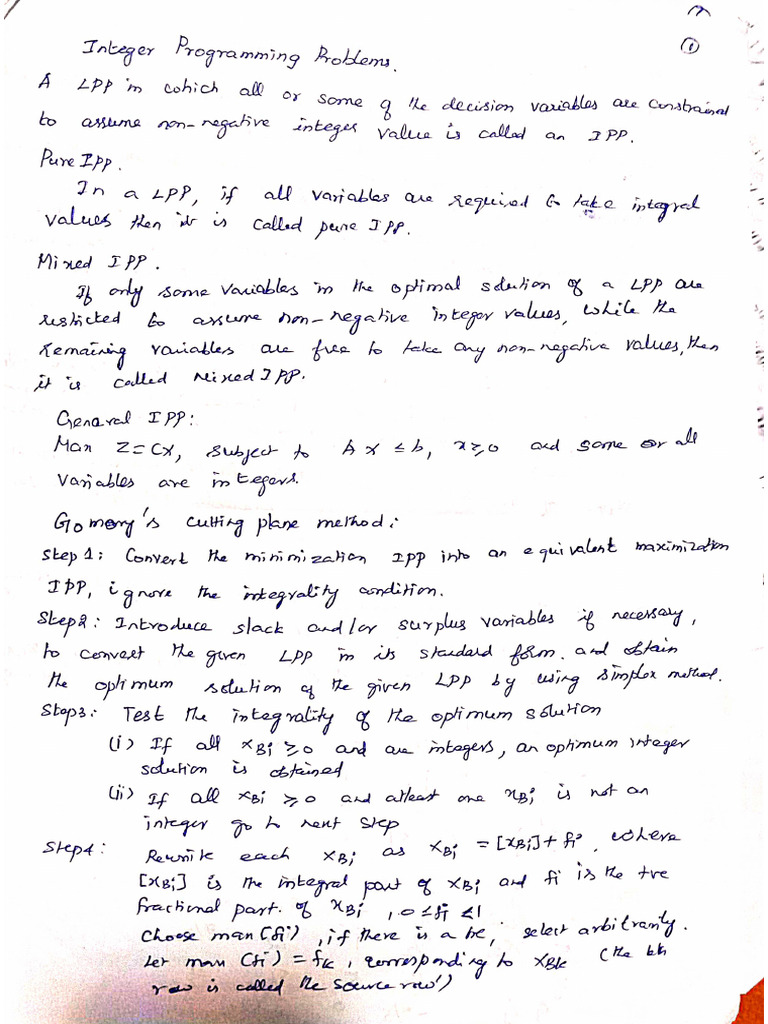 ①
Integer Programming Problems.
A LPP in which all or some of the decision variables are constrained
to assume non-negative integer value is called an IPP.
Pure IPP.
In a LPP, if all variables are required to take integral
values then it is called pure IPP.
Mixed IPP.
If only some variables in the optimal solution of a LPP are
restricted to assume non-negative integer values, while the
remaining variables are free to take any non-negative values, then
it is called Mixed IPP.
General IPP:
Max Z=CX, subject to AX ≤ b, x≥0 and some or all
variables are integers.
Gomory's cutting plane method:
Step 1: Convert the minimization IPP into an equivalent maximization
IPP, ignore the integrality condition.
Step2: Introduce slack and/or surplus variables if necessary,
to convert the given LPP in its standard form. and obtain
the optimum solution of the given LPP by using simplex method.
Step3: Test the integrality of the optimum solution
(i) If all xBi ≥0 and are integers, an optimum integer
solution is obtained
(ii) If all xBi ≥0 and atleast one xBi is not an
integer go to next step
Step4: Rewrite each xBi as xBi = [xBi]+fi, where
[xBi] is the integral part of xBi and fi is the +ve
fractional part of xBi, 0≤fi≤1
Choose max(fi), if there is a tie, select arbitrarily.
Let max (fi) = fk, corresponding to xBk (the kth
row is called the 'source row')